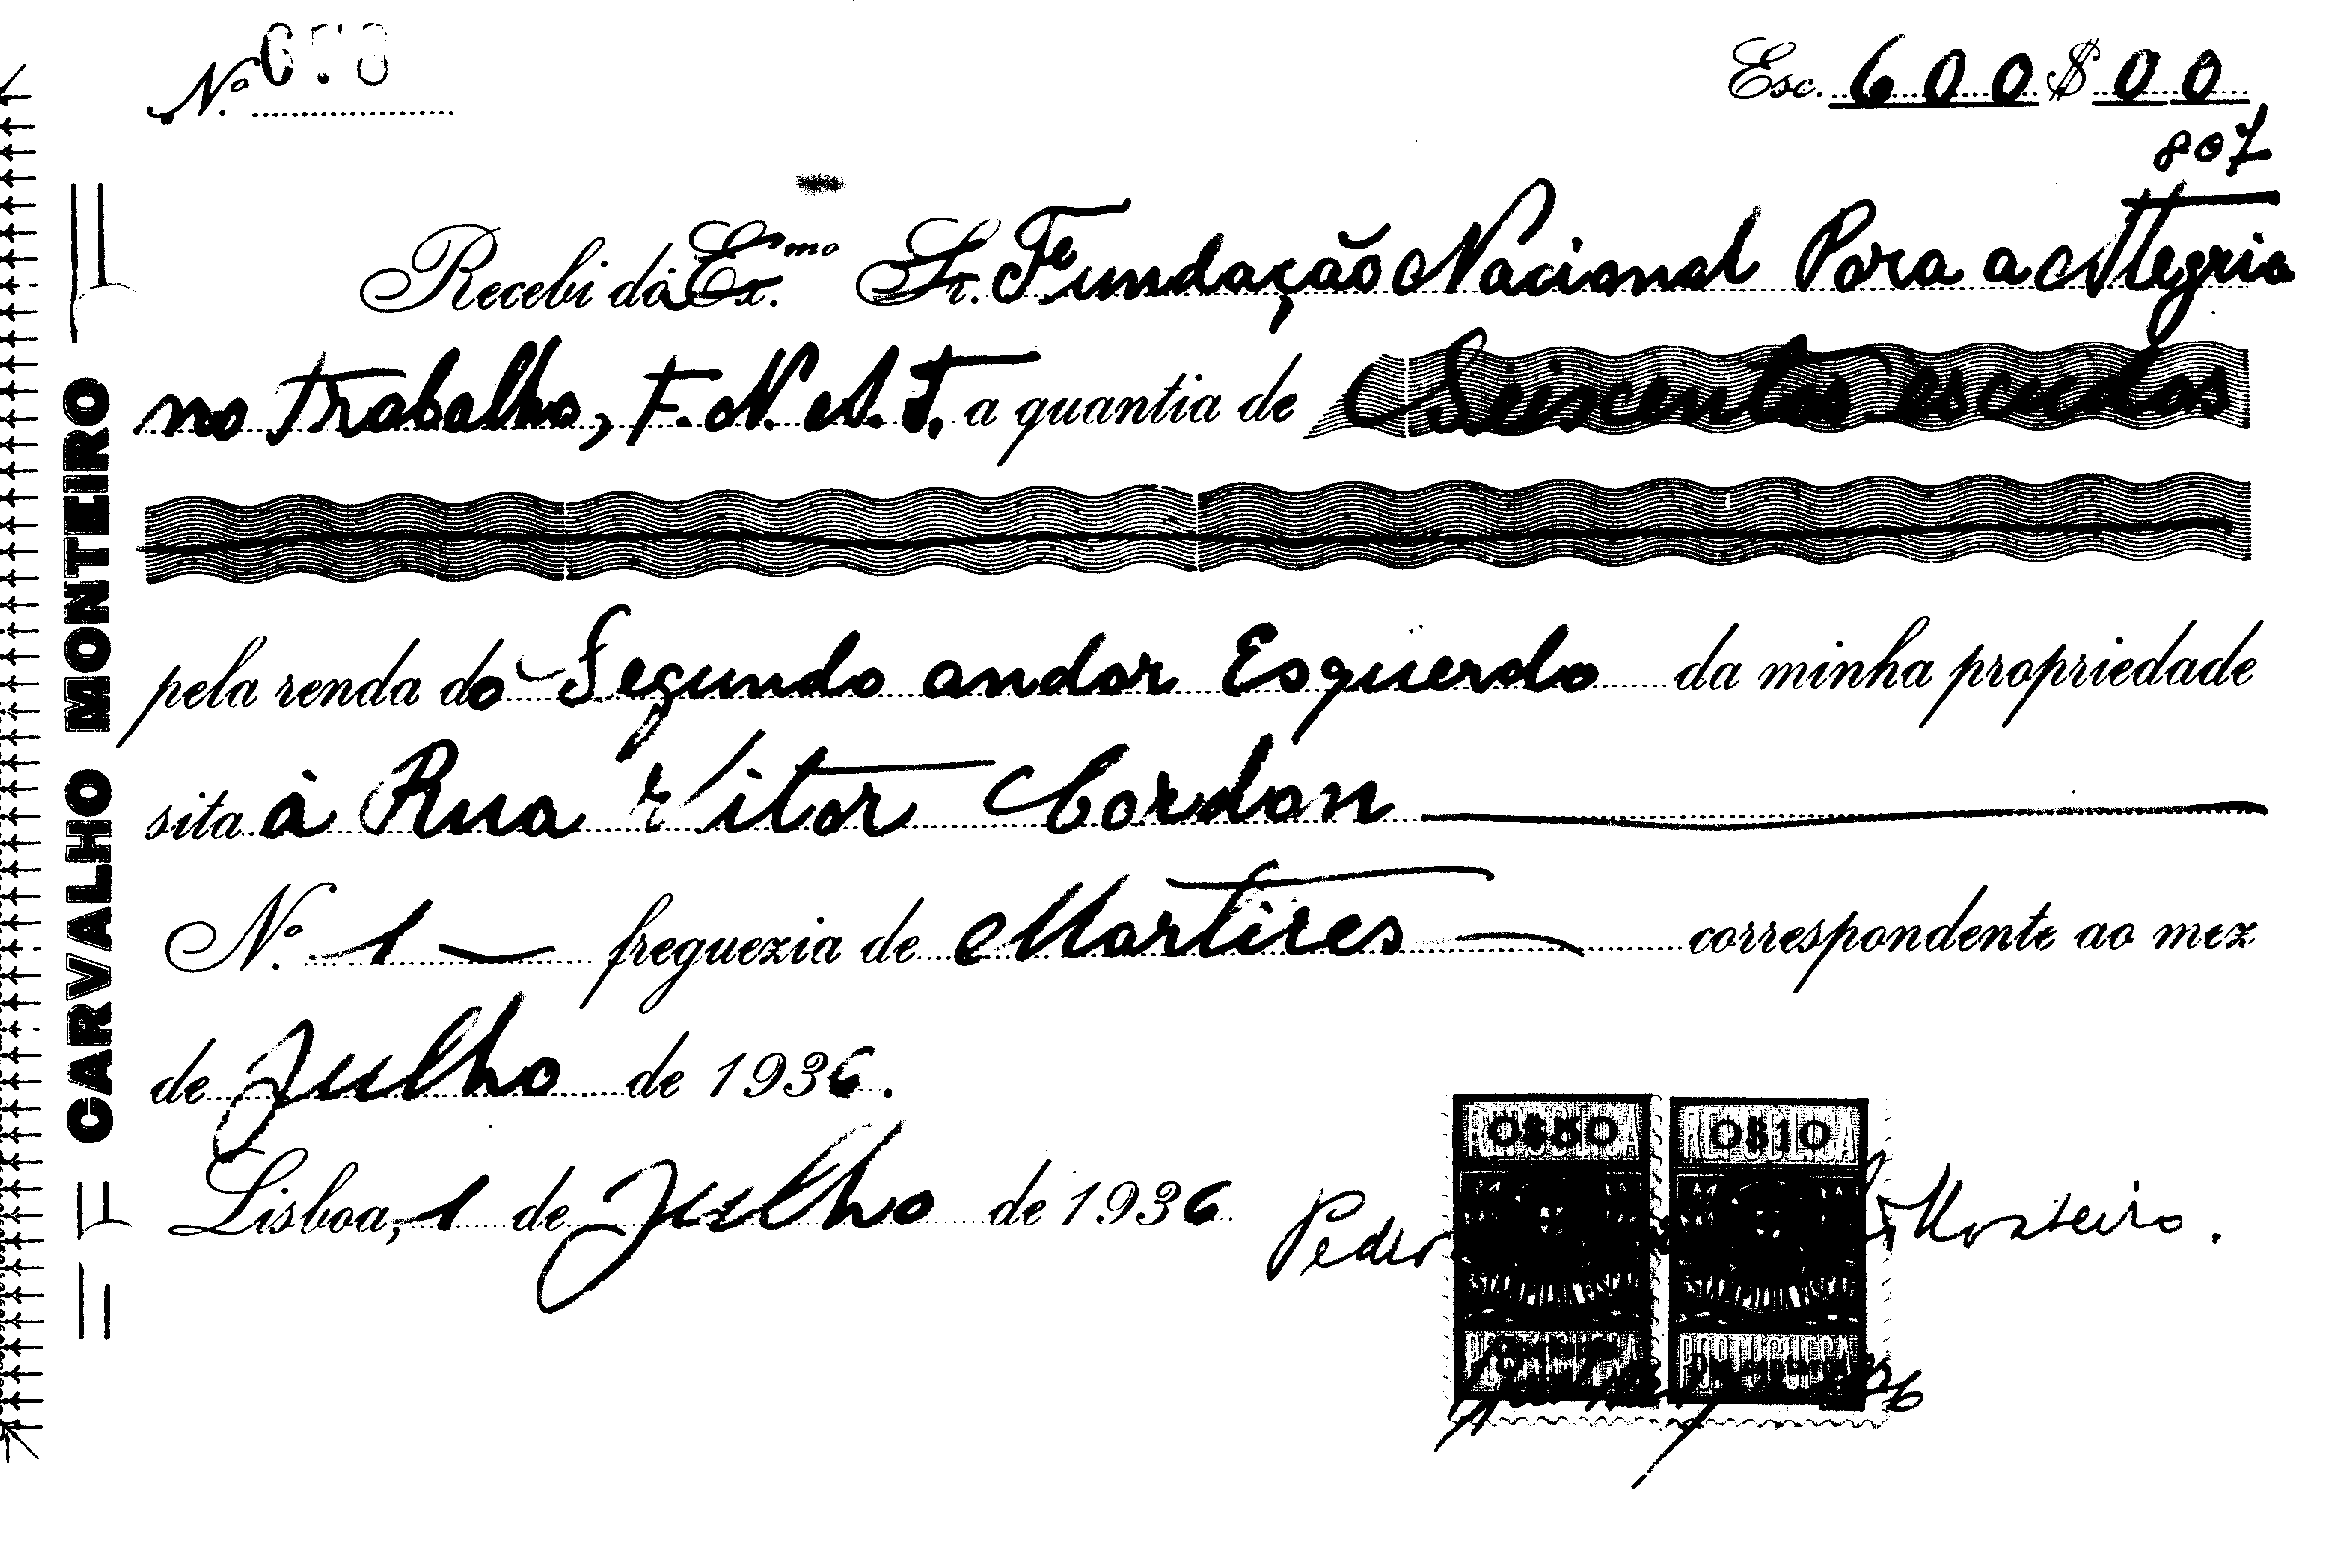 Nº
Esc. 600$00
807
Recebi da Exmo Sr. Fundação Nacional Para a Alegria
no Trabalho, F.N.A.T. a quantia de Seiscentos escudos
pela renda do Segundo andar Esquerdo da minha propriedade
sita à Rua Vitor Cordon
Nº 1 freguezia de Martires correspondente ao mez
de Julho de 1936.
Lisboa, 1 de Julho de 1936
Pedro Monteiro.
0$50 0$10
ESTAMPILHA FISCAL ESTAMPILHA FISCAL
CARVALHO MONTEIRO